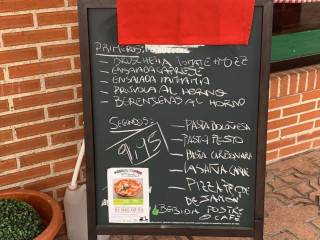 PRIMEROS:
- BRUSCHETTA TOMATE MOZZ
- ENSALADA CAPRESE
- ENSALADA
- PROVOLA AL HORNO
- BERENJENAS AL HORNO
SEGUNDOS:
9,45
- PASTA BOLOÑESA
- PASTA PESTO
- PASTA CARBONARA
- LASAÑA CARNE
- PIZZA
DE JAMON
BEBIDA POSTRE
O CAFE